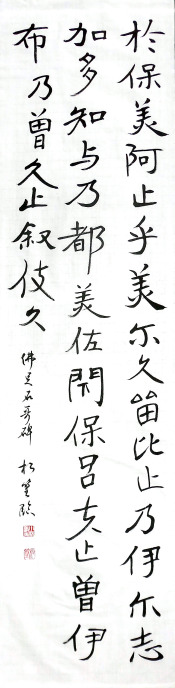 於保美阿止乎美尓久留比止乃伊尓志
加多知与乃都美佐閇保呂夫止曽伊
布乃曽久止叙伎久
佛足石哥碑 臨